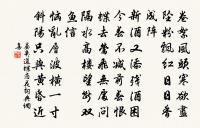 卷絮風頭寒欲盡
墜粉飄紅日日香
成陣
新酒又添殘酒困
今春不減前春恨
蝶去鶯飛無處問
隔水高樓望斷雙
魚信
惱亂層波橫一寸
斜陽只與黃昏近
晏幾道蝶戀花